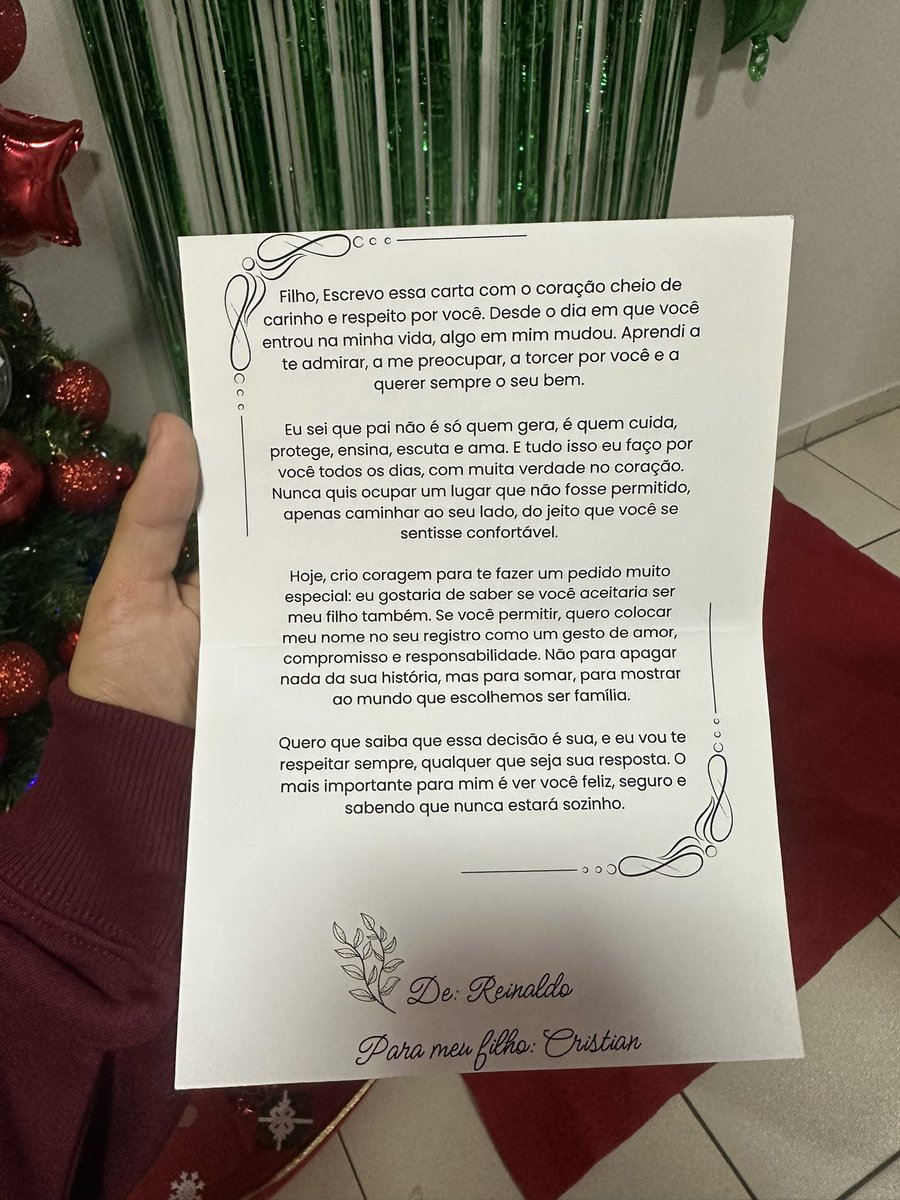 Filho, Escrevo essa carta com o coração cheio de
carinho e respeito por você. Desde o dia em que você
entrou na minha vida, algo em mim mudou. Aprendi a
te admirar, a me preocupar, a torcer por você e a
querer sempre o seu bem.
Eu sei que pai não é só quem gera, é quem cuida,
protege, ensina, escuta e ama. E tudo isso eu faço por
você todos os dias, com muita verdade no coração.
Nunca quis ocupar um lugar que não fosse permitido,
apenas caminhar ao seu lado, do jeito que você se
sentisse confortável.
Hoje, crio coragem para te fazer um pedido muito
especial: eu gostaria de saber se você aceitaria ser
meu filho também. Se você permitir, quero colocar
meu nome no seu registro como um gesto de amor,
compromisso e responsabilidade. Não para apagar
nada da sua história, mas para somar, para mostrar
ao mundo que escolhemos ser família.
Quero que saiba que essa decisão é sua, e eu vou te
respeitar sempre, qualquer que seja sua resposta. O
mais importante para mim é ver você feliz, seguro e
sabendo que nunca estará sozinho.
De: Reinaldo
Para meu filho: Cristian